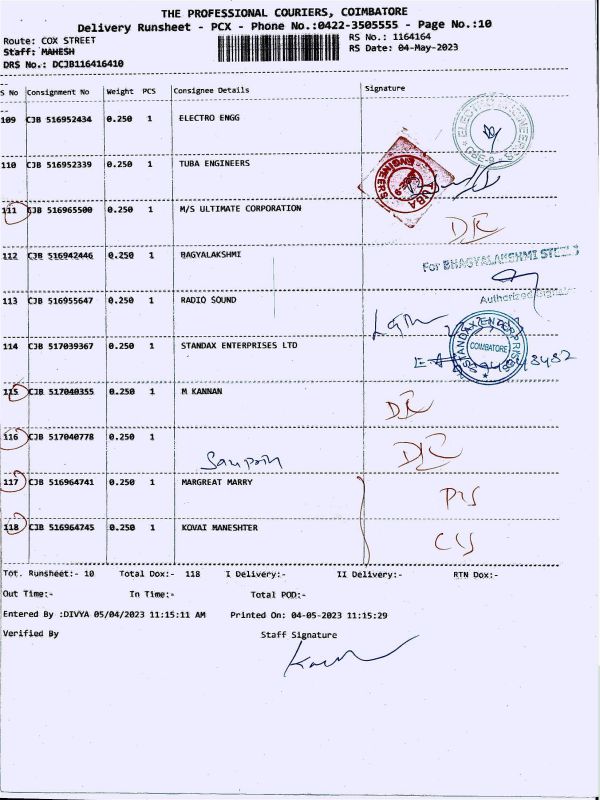 THE PROFESSIONAL COURIERS, COIMBATORE
Delivery Runsheet - PCX - Phone No.:0422-3505555 - Page No.:10
Route: COX STREET
RS No.: 1164164
Staff: MAHESH
RS Date: 04-May-2023
DRS No.: DCJB116416410
S No Consignment No Weight PCS Consignee Details Signature
109 CJB 516952434 0.250 1 ELECTRO ENGG
110 CJB 516952339 0.250 1 TUBA ENGINEERS
TUBA ENGINEERS
111 CJB 516965500 0.250 1 M/S ULTIMATE CORPORATION
112 CJB 516942446 0.250 1 BAGYALAKSHMI
For BHAGYALAKSHMI STEELS
Authorized Signatory
113 CJB 516955647 0.250 1 RADIO SOUND
114 CJB 517039367 0.250 1 STANDAX ENTERPRISES LTD
STANDAX ENTERPRISES
COIMBATORE
115 CJB 517040355 0.250 1 M KANNAN
116 CJB 517040778 0.250 1
117 CJB 516964741 0.250 1 MARGREAT MARRY
118 CJB 516964745 0.250 1 KOVAI MANESHTER
Tot. Runsheet:- 10 Total Dox:- 118 I Delivery:- II Delivery:- RTN Dox:-
Out Time:- In Time:- Total POD:-
Entered By :DIVYA 05/04/2023 11:15:11 AM Printed On: 04-05-2023 11:15:29
Verified By Staff Signature